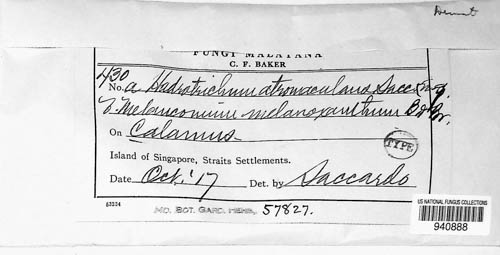 Demat
FUNGI MALAYANA
C. F. BAKER
430
No. a Hadrotrichum atromaculans Sacc.
b. Melanconium melanoxanthum B & Br.
On Calamus
TYPE
Island of Singapore, Straits Settlements.
Date Oct. '17 Det. by Saccardo
83234
MO. BOT. GARD. HERB. 57827.
US NATIONAL FUNGUS COLLECTIONS
940888